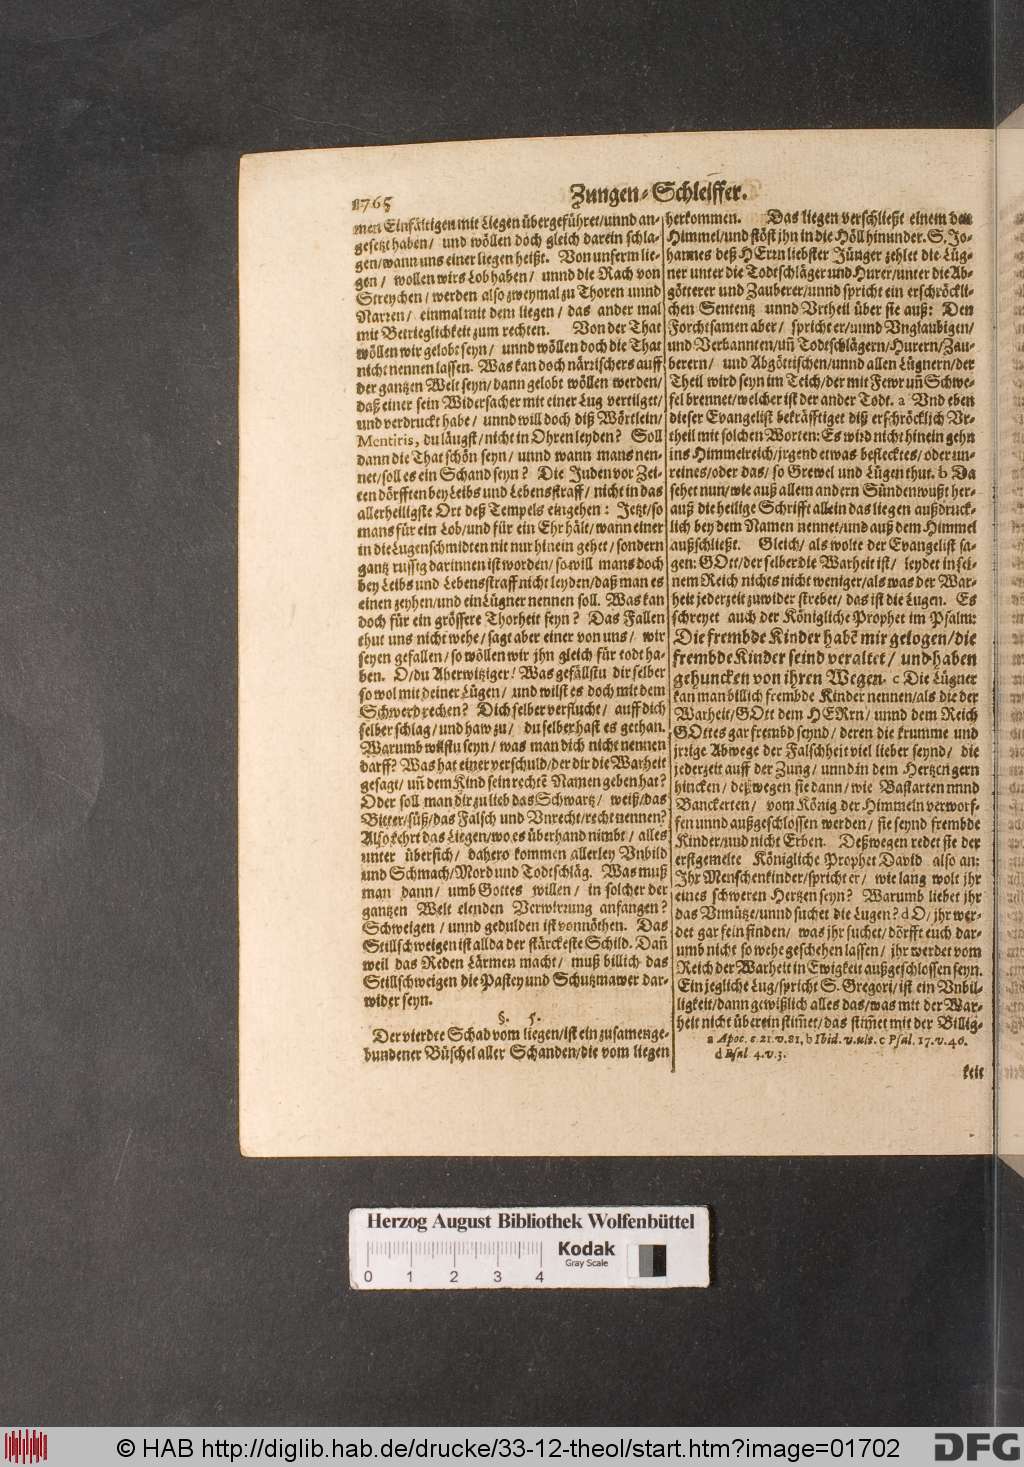 1765
Zungen-Schleiffer.
men Einfältigen mit Liegen übergeführet/unnd an-
gesetzt haben/ und wöllen doch gleich darein schla-
gen/wann uns einer liegen heißt. Von unserm lie-
gen/ wollen wirs Lob haben/ unnd die Rach von
Streychen/ werden also zweymal zu Thoren unnd
Narren/ einmal mit dem liegen/ das ander mal
mit Betrieglichkeit zum rechten. Von der That
wöllen wir gelobt seyn/ unnd wöllen doch die That
nicht nennen lassen. Was kan doch närrischers auff
der gantzen Welt seyn/ dann gelobt wöllen werden/
daß einer sein Widersacher mit einer Lug vertilget/
und verdruckt habe/ unnd will doch diß Wörtlein/
Mentiris, du läugst/ nicht in Ohren leyden? Soll
dann die That schön seyn/ unnd wann mans nen-
net/soll es ein Schand seyn? Die Juden vor Zei-
ten dörfften bey Leibs und Lebensstraff/ nicht in das
allerheiligste Ort deß Tempels eingehen: Jetzt/so
mans für ein Lob/und für ein Ehr hält/wann einer
in die Lugenschmidten nit nur hinein gehet/ sondern
gantz russig darinnen ist worden/ so will mans doch
bey Leibs und Lebensstraff nicht leyden/daß man es
einen zeyhen/und ein Lügner nennen soll. Was kan
doch für ein grössere Thorheit seyn? Das Fallen
thut uns nicht wehe/ sagt aber einer von uns/ wir
seyen gefallen/ so wöllen wir jhn gleich für todt ha-
ben. O/du Aberwitziger! Was gefällstu dir selber
so wol mit deiner Lügen/ und wilst es doch mit dem
Schwerd rechen? Dich selber verflucht/ auff dich
selber schlag/ und haw zu/ du selber hast es gethan.
Warumb wilstu seyn/ was man dich nicht nennen
darff? Was hat einer verschuld/der dir die Warheit
gesagt/ uñ dem Kind sein rechtē Namen geben hat?
Oder soll man dir zu lieb das Schwartz/ weiß/das
Bitter/süß/das Falsch und Unrecht/recht nennen?
Also kehrt das Liegen/wo es überhand nimbt/ alles
unter übersich/ dahero kommen allerley Vnbild
und Schmach/Mord und Todtschläg. Was muß
man dann/ umb Gottes willen/ in solcher der
gantzen Welt elenden Verwirrung anfangen?
Schweigen/ unnd gedulden ist vonnöthen. Das
Stillschweigen ist allda der stärckeste Schild. Dañ
weil das Reden Lärmen macht/ muß billich das
Stillschweigen die Pastey und Schutzmawer dar-
wider seyn.
§. 5.
Der vierdte Schad vom liegen/ist ein zusamenge-
bundener Büschel aller Schanden/die vom liegen
herkommen. Das liegen verschließt einem den
Himmel/und stöst jhn in die Höll hinunder. S. Jo-
hannes deß HErrn liebster Jünger zehlet die Lüg-
ner unter die Todtschläger und Hurer/unter die Ab-
götterer und Zauberer/unnd spricht ein erschröckli-
chen Sententz unnd Vrtheil über sie auß: Den
Forchtsamen aber/ spricht er/unnd Vnglaubigen/
und Verbannten/uñ Todtschlägern/Hurern/Zau-
berern/ und Abgöttischen/unnd allen Lügnern/der
Theil wird seyn im Teich/der mit Fewr uñ Schwe-
fel brennet/welcher ist der ander Todt. a Vnd eben
dieser Evangelist bekräfftiget diß erschröcklich Vr-
theil mit solchen Worten: Es wird nicht hinein gehn
ins Himmelreich/jrgend etwas beflecktes/oder un-
reines/oder das/ so Grewel und Lügen thut. b Da
sehet nun/wie auß allem andern Sündenwußt her-
auß die heilige Schrifft allein das liegen außdruck-
lich bey dem Namen nennet/und auß dem Himmel
außschließt. Gleich/ als wolte der Evangelist sa-
gen: GOtt/der selber die Warheit ist/ leydet in sei-
nem Reich nichts nicht weniger/als was der War-
heit jederzeit zuwider strebet/ das ist die Lugen. Es
schreyet auch der Königliche Prophet im Psalm:
Die frembde Kinder habē mir gelogen/die
frembde Kinder seind veraltet/ und haben
gehuncken von ihren Wegen. c Die Lügner
kan man billich frembde Kinder nennen/als die der
Warheit/GOtt dem HERrn/ unnd dem Reich
GOttes gar frembd seynd/ deren die krumme und
jrrige Abwege der Falschheit viel lieber seynd/ die
jederzeit auff der Zung/ unnd in dem Hertzen gern
hincken/ deßwegen sie dann/ wie Bastarten unnd
Banckerten/ vom König der Himmeln verworf-
fen unnd außgeschlossen werden/ sie seynd frembde
Kinder/und nicht Erben. Deßwegen redet sie der
erstgemelte Königliche Prophet David also an:
Ihr Menschenkinder/spricht er/ wie lang wolt jhr
eines schweren Hertzen seyn? Warumb liebet jhr
das Vnnütze/unnd suchet die Lugen? d O/ jhr wer-
det gar fein finden/ was jhr suchet/dörfft euch dar-
umb nicht so wehe geschehen lassen/ jhr werdet vom
Reich der Warheit in Ewigkeit außgeschlossen seyn.
Ein jegliche Lug/spricht S. Gregori/ ist ein Vnbil-
ligkeit/dann gewißlich alles das/was mit der War-
heit nicht überein stim̄et/das stim̄et mit der Billig-
a Apoc. c. 21. v. 81, b Ibid. v. ult. c Psal. 17. v. 46.
d Psal. 4. v. 3.
keit
Herzog August Bibliothek Wolfenbüttel
0 1 2 3 4
Kodak
Gray Scale
© HAB http://diglib.hab.de/drucke/33-12-theol/start.htm?image=01702
DFG